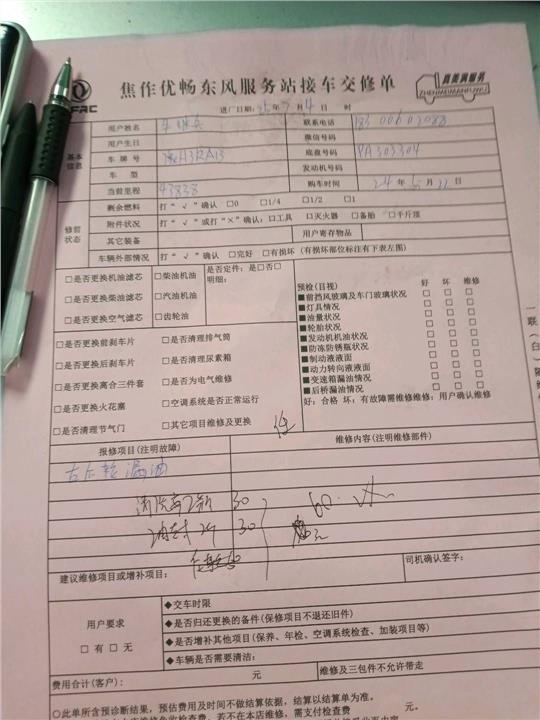 焦作优畅东风服务站接车交修单
真美满服务
ZHENMEIMANFUWU
进厂日期: 25 年 7 月 4 日 时
基本信息
用户姓名 联系电话
用户生日 微信号码
车牌号 豫H3RA13 底盘号码 PA303304
车型 发动机号码
当前里程 43838 购车时间 24 年 5 月 22 日
修前状态
剩余燃料 打“√”确认 □0 □1/4 □1/2 □1
附件状况 打“√”或打“×”确认: □工具 □灭火器 □备胎 □千斤顶
其它装备 用户寄存物品
车辆外部情况 打“√”确认 □完好 □有损坏 (有损坏部位标注有下表左图)
□是否更换机油滤芯 □柴油机油
□是否更换柴油滤芯 □汽油机油
□是否更换空气滤芯 □齿轮油
是否定件: 是□否□
明细:
预检(目视) 好 坏 维修
■前挡风玻璃及车门玻璃状况 □ □ □
■灯具情况 □ □ □
■油量状况 □ □ □
■轮胎状况 □ □ □
■发动机机油状况 □ □ □
■防冻防锈瓶状况 □ □ □
■制动液液面 □ □ □
■动力转向液液面 □ □ □
■变速箱漏油情况 □ □ □
■后桥漏油情况 □ □ □
好: 合格 坏: 有故障需维修维修: 用户确认维修
□是否更换前刹车片 □是否清理排气筒
□是否更换后刹车片 □是否清理尿素箱
□是否更换离合三件套 □是否为电气维修
□是否更换火花塞 □空调系统是否正常运行
□是否清理节气门 □其它项目维修及更换
报修项目(注明故障) 维修内容(注明维修部件)
漏油
30
30
60
建议维修项目或增补项目:
司机确认签字:
用户要求
□有 □无
◆交车时限
◆是否归还更换的备件(保修项目不退还旧件)
◆是否增补其他项目(保养、年检、空调系统检查、加装项目等)
◆车辆是否需要清洁:
费用合计(客户): 元 维修及三包件不允许带走
○此单所含预诊断结果, 预估费用及时间不做结算依据, 结算以结算单为准。